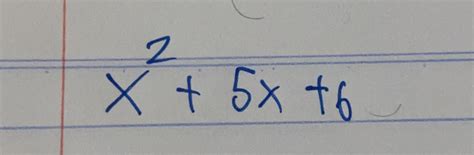 x² + 5x + 6